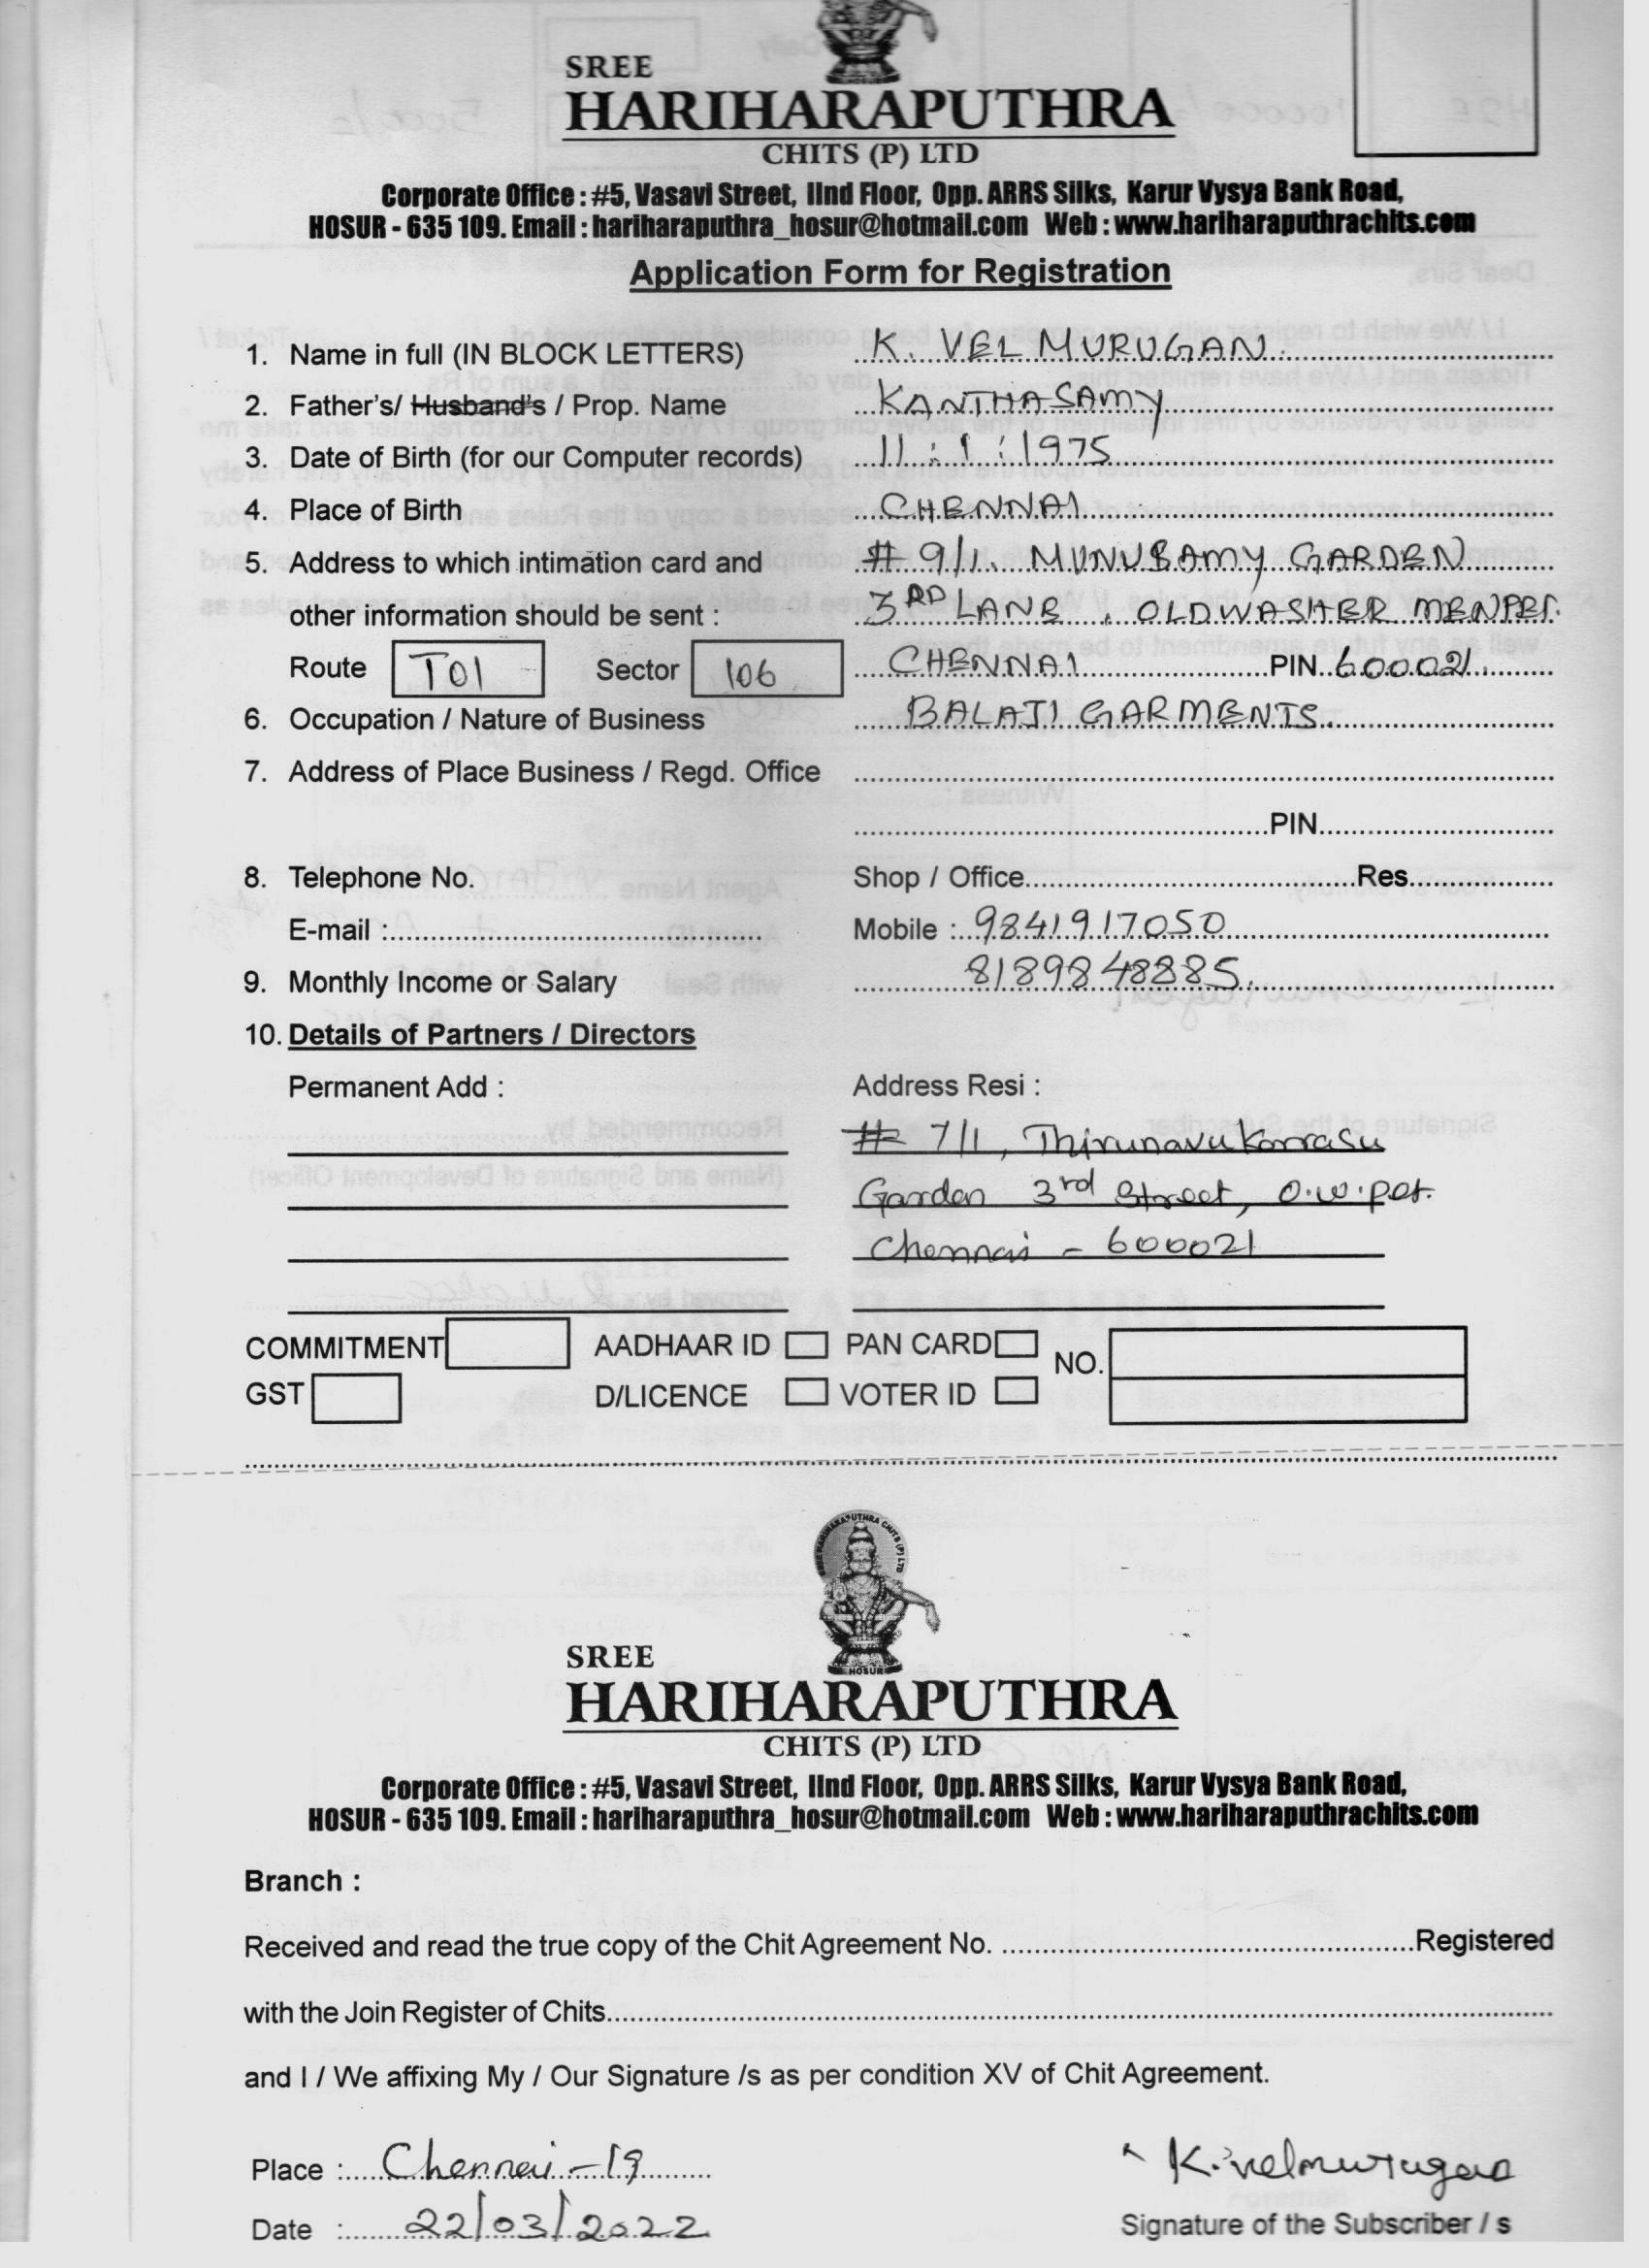 SREE
HARIHARAPUTHRA
CHITS (P) LTD
Corporate Office : #5, Vasavi Street, IInd Floor, Opp. ARRS Silks, Karur Vysya Bank Road,
HOSUR - 635 109. Email : hariharaputhra_hosur@hotmail.com Web : www.hariharaputhrachits.com
Application Form for Registration
1. Name in full (IN BLOCK LETTERS) K. VELMURUGAN.
2. Father's/ Husband's / Prop. Name KANTHASAMY
3. Date of Birth (for our Computer records) 11 : 1 : 1975
4. Place of Birth CHENNAI
5. Address to which intimation card and # 9/1. MUNUSAMY GARDEN
other information should be sent : 3RD LANE, OLDWASHER MENPET.
Route T01 Sector 106 CHENNAI PIN 600021.
6. Occupation / Nature of Business BALAJI GARMENTS.
7. Address of Place Business / Regd. Office
PIN
8. Telephone No. Shop / Office Res.
E-mail : Mobile : 9841917050
9. Monthly Income or Salary 8189848885.
10. Details of Partners / Directors
Permanent Add : Address Resi :
# 7/1, Thirunavukarrasu
Garden 3rd Street, O.W.pet.
Chennai - 600021
COMMITMENT AADHAAR ID PAN CARD NO.
GST D/LICENCE VOTER ID
SREE HARIHARAPUTHRA CHITS (P) LTD
HOSUR
SREE
HARIHARAPUTHRA
CHITS (P) LTD
Corporate Office : #5, Vasavi Street, IInd Floor, Opp. ARRS Silks, Karur Vysya Bank Road,
HOSUR - 635 109. Email : hariharaputhra_hosur@hotmail.com Web : www.hariharaputhrachits.com
Branch :
Received and read the true copy of the Chit Agreement No. Registered
with the Join Register of Chits
and I / We affixing My / Our Signature /s as per condition XV of Chit Agreement.
Place : Chennai - 19 K. velmurugan
Date : 22/03/2022 Signature of the Subscriber / s